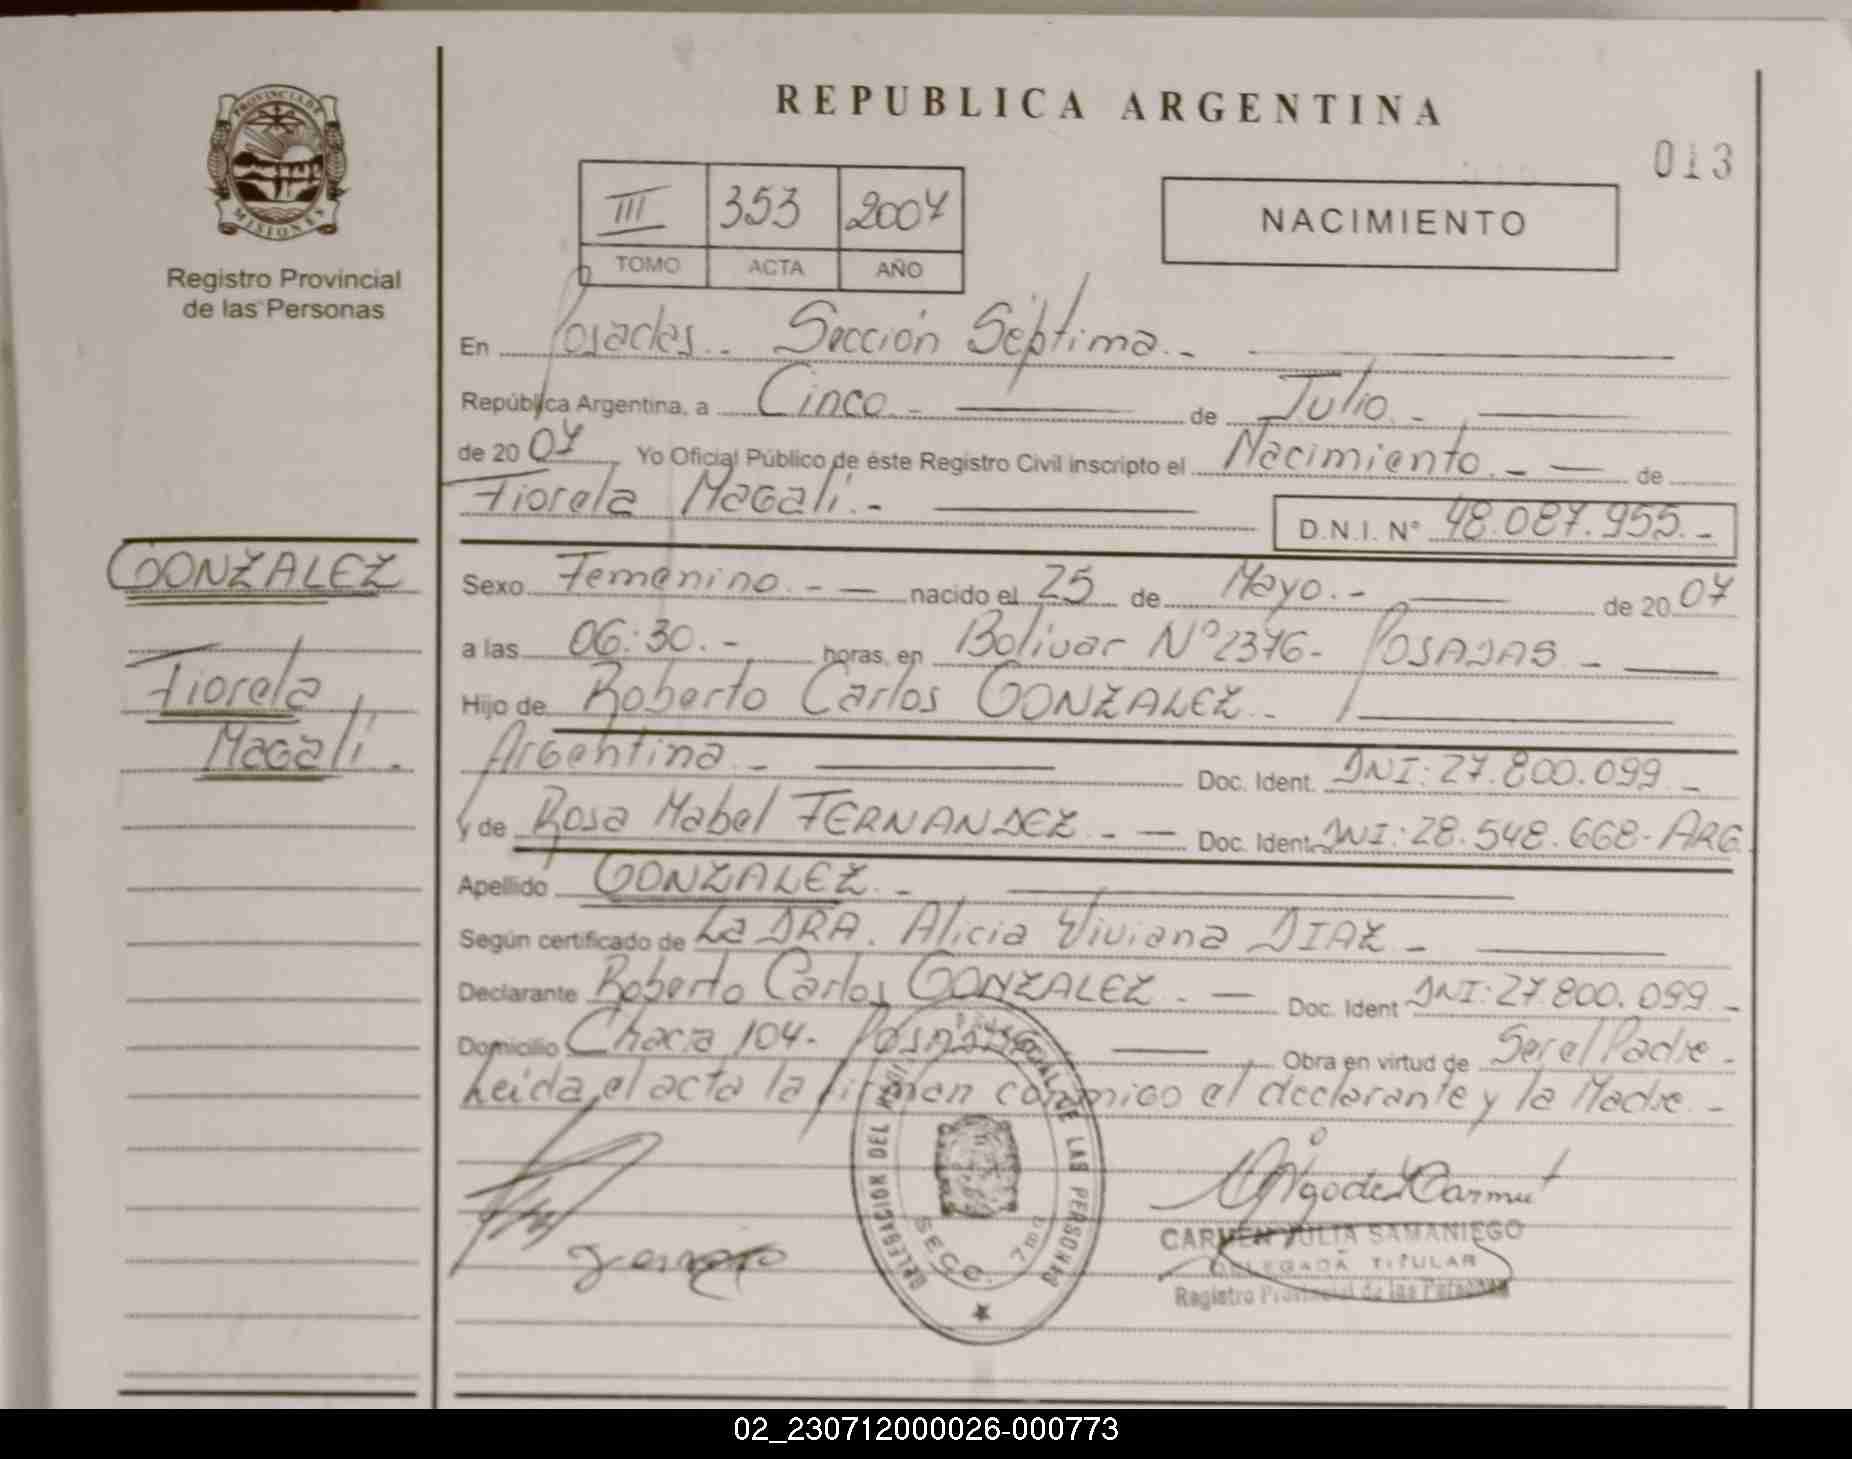 PROVINCIA DE
MISIONES
Registro Provincial
de las Personas
REPUBLICA ARGENTINA
013
III 353 2007
TOMO ACTA AÑO
NACIMIENTO
En Posadas.- Sección Séptima.-
República Argentina, a Cinco.- de Julio.-
de 2007 Yo Oficial Público de éste Registro Civil inscripto el Nacimiento.- de
Fiorela Magalí.- D.N.I. N° 48.087.955.-
GONZALEZ
Fiorela
Magalí.
Sexo Femenino.- nacido el 25 de Mayo.- de 2007
a las 06:30.- horas, en Bolivar N° 2376- POSADAS -
Hijo de Roberto Carlos GONZALEZ.-
Argentina.- Doc. Ident. DNI: 27.800.099.-
y de Rosa Mabel FERNANDEZ.- Doc. Ident. DNI: 28.548.668- ARG.
Apellido GONZALEZ.-
Según certificado de La DRA. Alicia Viviana DIAZ -
Declarante Roberto Carlos GONZALEZ.- Doc. Ident DNI: 27.800.099.-
Domicilio Chacra 104- POSADAS Obra en virtud de Ser el Padre-
Leida el acta la firman conmigo el declarante y la Madre.-
DELEGACION DEL DE LAS PERSONAS
SECC. 7ma
CARMEN JULIA SAMANIEGO
DELEGADA TITULAR
Registro Provincial de las Personas
02_230712000026-000773